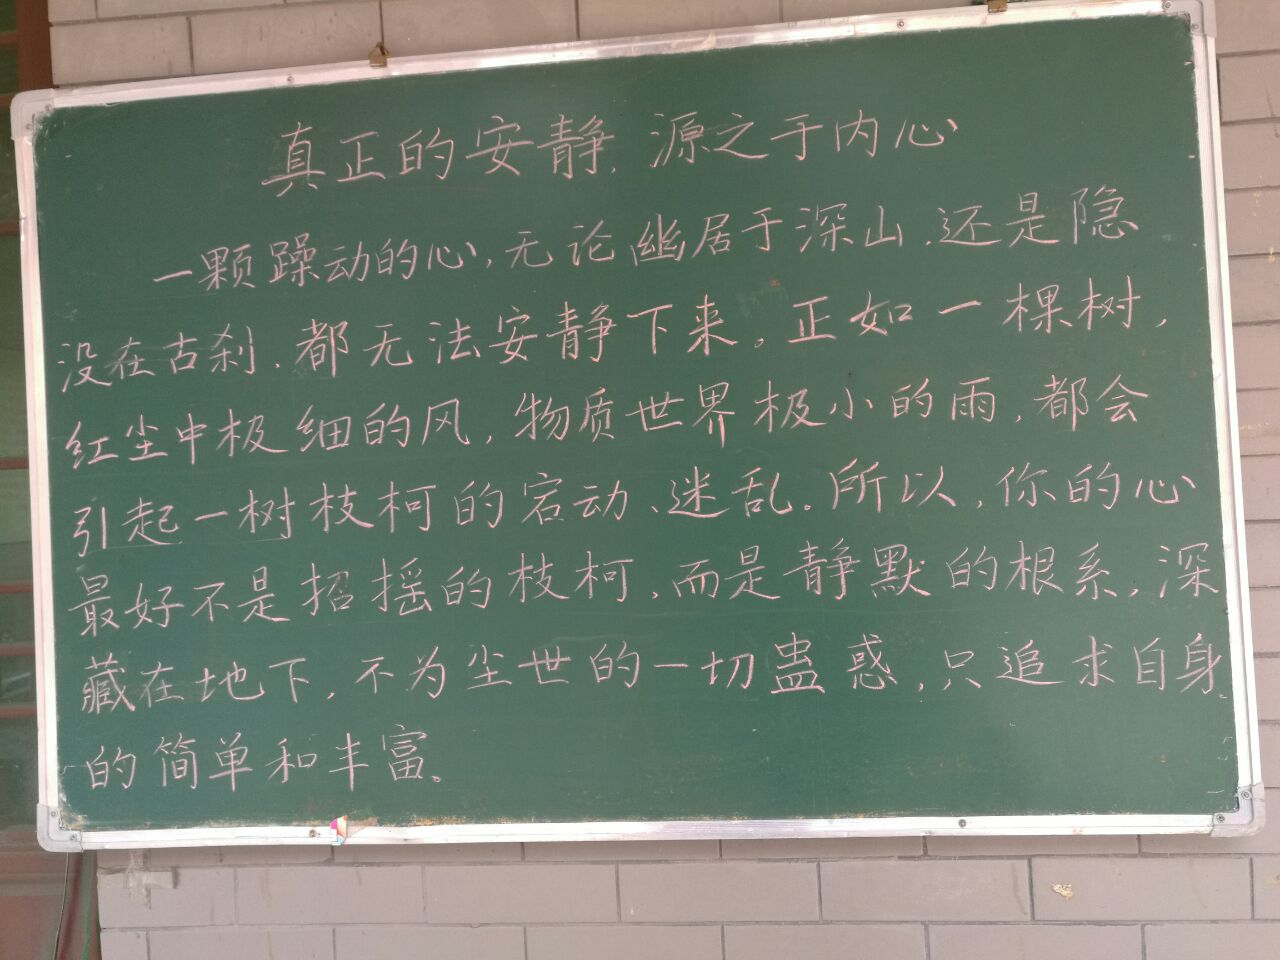 真正的安静,源之于内心
一颗躁动的心,无论幽居于深山,还是隐
没在古刹,都无法安静下来。正如一棵树,
红尘中极细的风,物质世界极小的雨,都会
引起一树枝柯的宕动、迷乱。所以,你的心
最好不是招摇的枝柯,而是静默的根系,深
藏在地下,不为尘世的一切蛊惑,只追求自身
的简单和丰富。